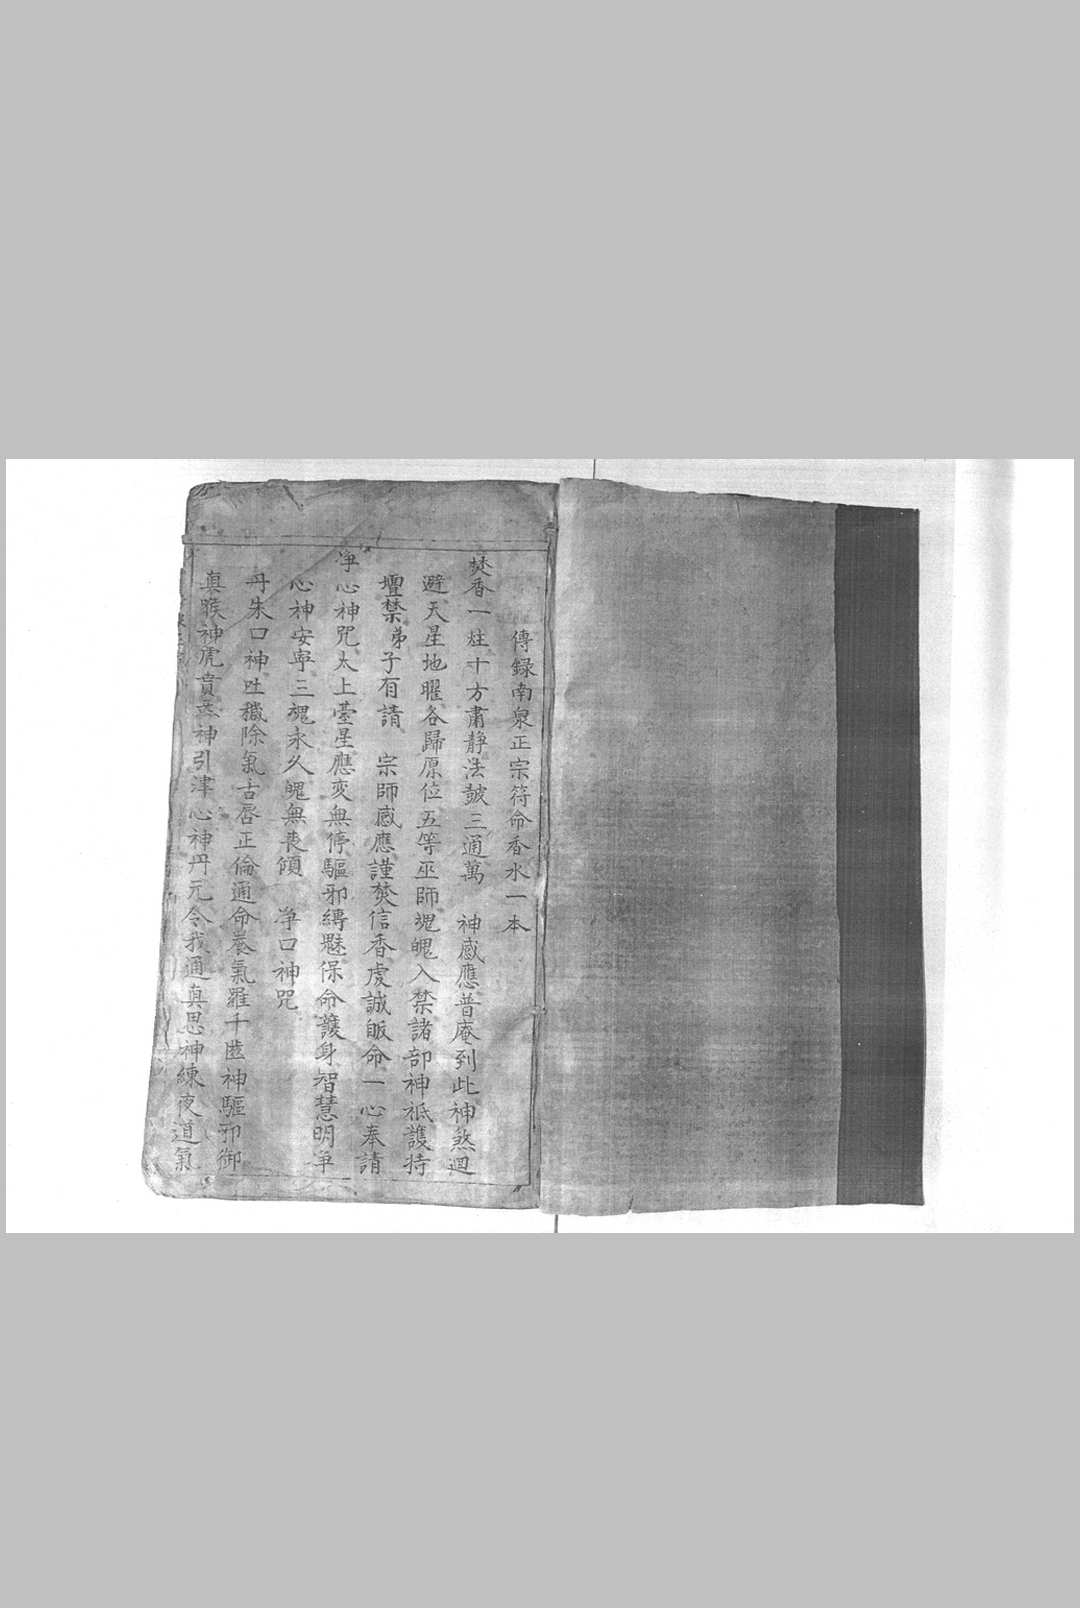 傳録南泉正宗符命香水一本
焚香一炷十方肅靜法皷三通萬　神感應普庵到此神煞迴
避天星地曜各歸原位五等巫師魂魄入禁諸部神祇護持
壇禁弟子有請　宗師感應謹焚信香虔誠皈命一心奉請
净心神咒太上臺星應变無停驅邪縛魅保命護身智慧明净
心神安寜三魂永久魄無丧傾　净口神咒
丹朱口神吐穢除氣舌唇正倫通命养氣羅千齿神驅邪御
真喉神虎賁炁神引津心神丹元令我通真思神練夜道氣